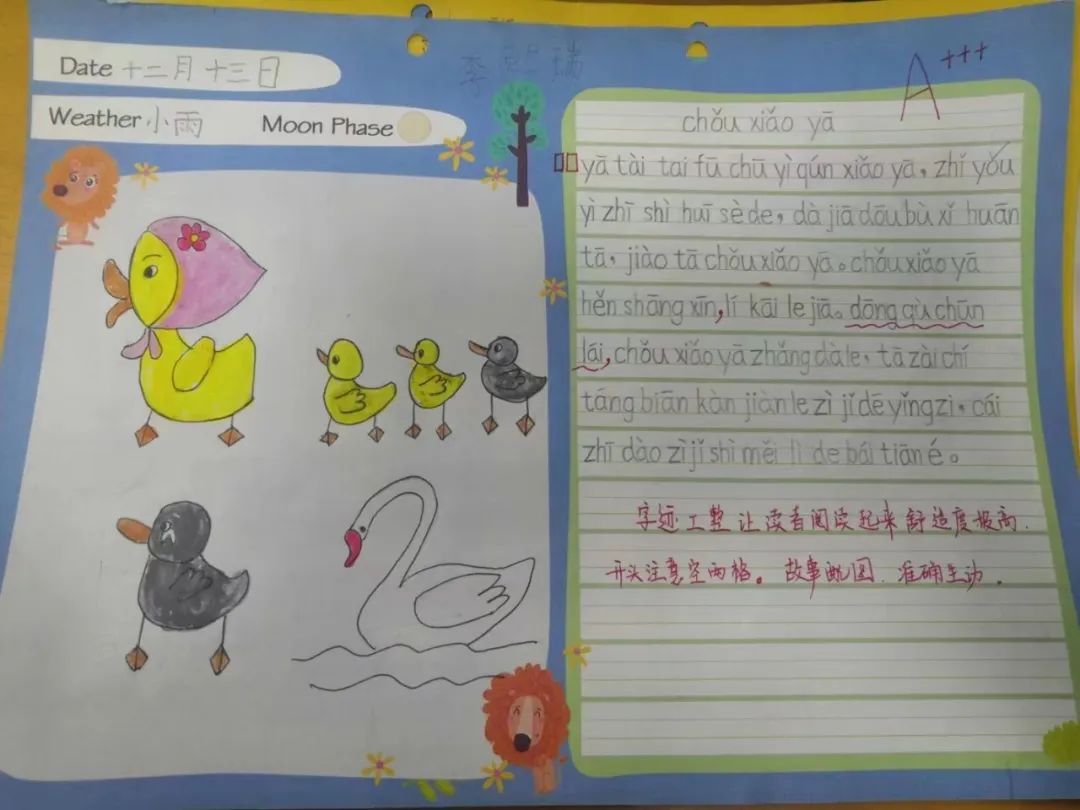 李 瑞
Date 十二月十三日
Weather 小雨 Moon Phase
A+++
chǒu xiǎo yā
yā tài tai fū chū yì qún xiǎo yā, zhǐ yǒu
yì zhī shì huī sè de, dà jiā dōu bù xǐ huān
tā, jiào tā chǒu xiǎo yā。chǒu xiǎo yā
hěn shāng xīn, lí kāi le jiā。dōng qù chūn
lái, chǒu xiǎo yā zhǎng dà le, tā zài chí
táng biān kàn jiàn le zì jǐ dē yǐng zi, cái
zhī dào zì jǐ shì měi lì de bái tiān é。
字迹工整让读者阅读起来舒适度极高.
开头注意空两格。故事配图.准确生动.